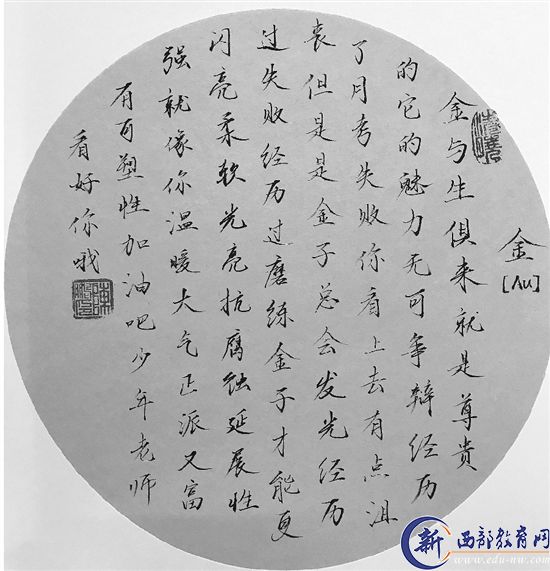 金
[Au]
金与生俱来就是尊贵
的它的魅力无可争辩经历
了月考失败你看上去有点沮
丧但是是金子总会发光经历
过失败经历过磨练金子才能更
闪亮柔软光亮抗腐蚀延展性
强就像你温暖大气正派又富
有可塑性加油吧少年老师
看好你哦
新 西部教育网
www.edu-nw.com